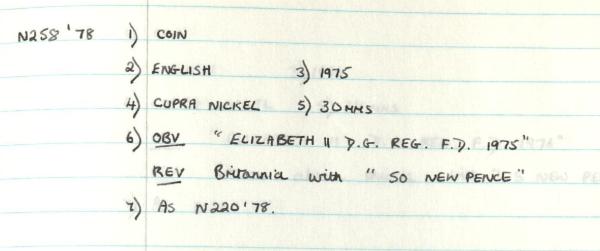 N258 '78 1) COIN
2) ENGLISH 3) 1975
4) CUPRA NICKEL 5) 30MMS
6) OBV " ELIZABETH II D.G. REG. F.D. 1975"
REV Britannia with " 50 NEW PENCE"
7) AS N220 '78.